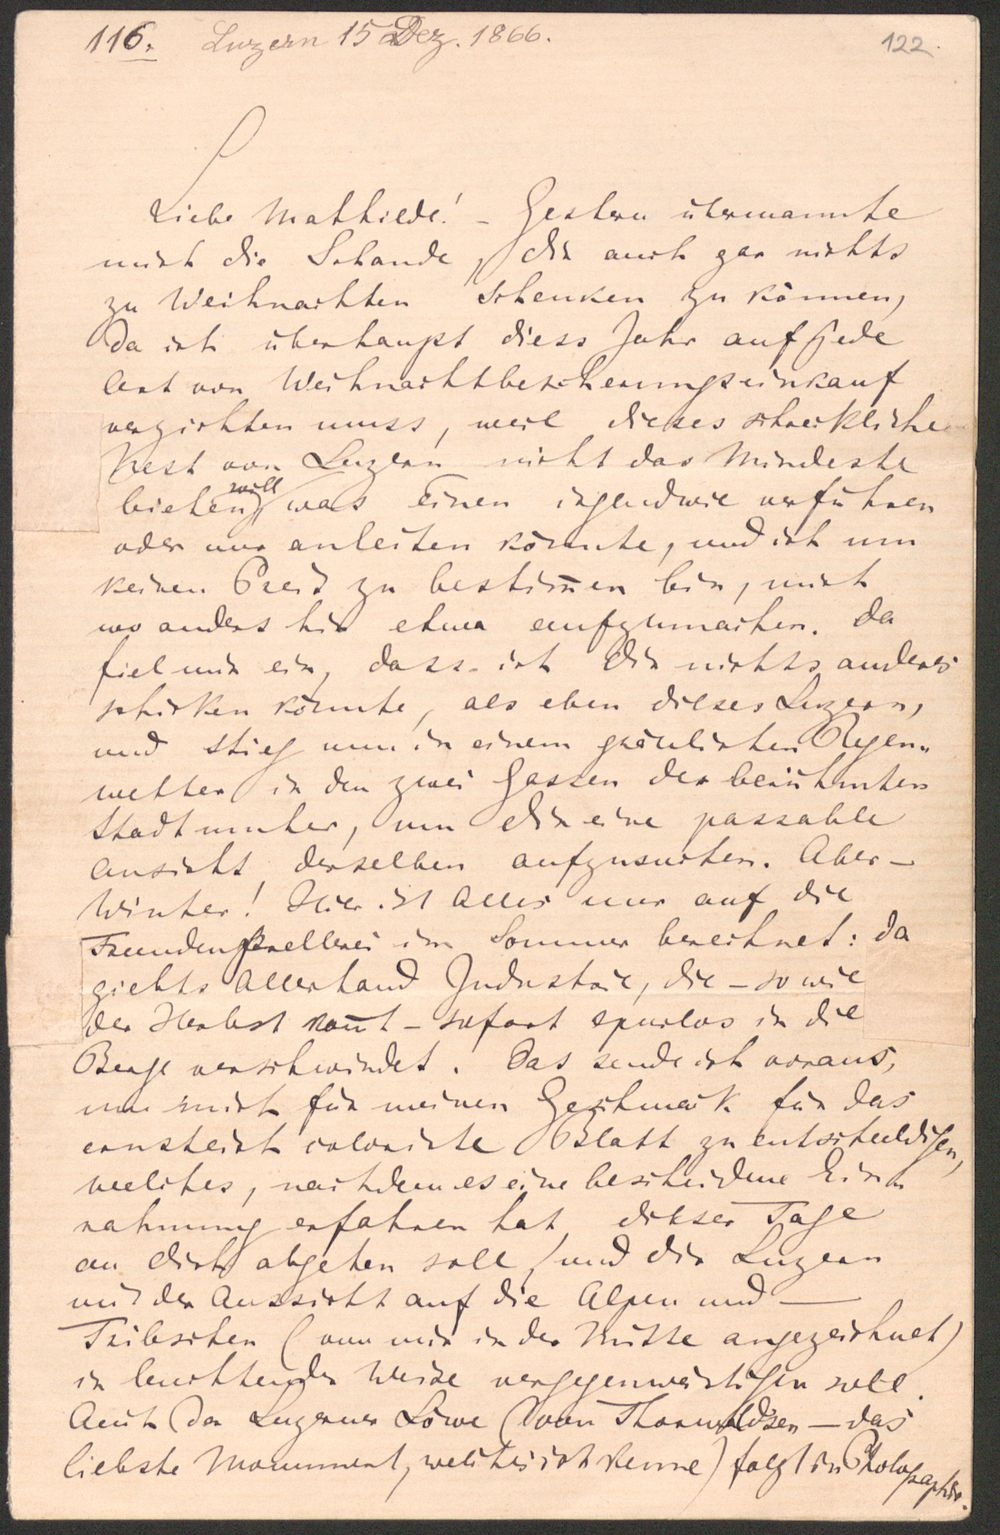 116. Luzern 15 Dez. 1866.
122.
Liebe Mathilde! – Gestern übermannte
mich die Schande, Dir auch gar nichts
zu Weihnachten schenken zu können,
da ich überhaupt diess Jahr auf jede
Art von Weihnachtbescherungseinkauf
verzichten muss, weil dieses schreckliche
Nest von Luzern nicht das Mindeste
bieten will was Einen irgendwie verführen
oder nur anleiten könnte, und ich um
keinen Preis zu bestim̅en bin, mich
wo anders hin etwa aufzumachen. Da
fiel mir ein, dass ich Dir nichts anderes
schicken könnte, als eben dieses Luzern,
und stieg nun in einem gräulichen Regen-
wetter in den zwei Gassen der berühmten
Stadt umher, um Dir eine passable
Ansicht derselben aufzusuchen. Aber –
Winter! Hier ist Alles nur auf die
Fremdenprellerei im Sommer berechnet: da
giebts Allerhand Industrie, die – so wie
der Herbst kom̅t – sofort spurlos in die
Berge verschwindet. Das sende ich voraus,
um mich für meinen Geschmack für das
colorirte Blatt zu entschuldigen,
welches, nachdem es eine bescheidene Einrah
nahmung erfahren hat, dieser Tage
an Dich abgehen soll, und Dir Luzern
mit der Aussicht auf die Alpen und –
Tribschen (von mir in der Mitte angezeichnet)
in leuchtender Weise vergegenwärtigen soll.
Auch der Luzerner Löwe (von Thorwaldsen – das
liebste Monument, welches ich kenne) folgt in Photographie.